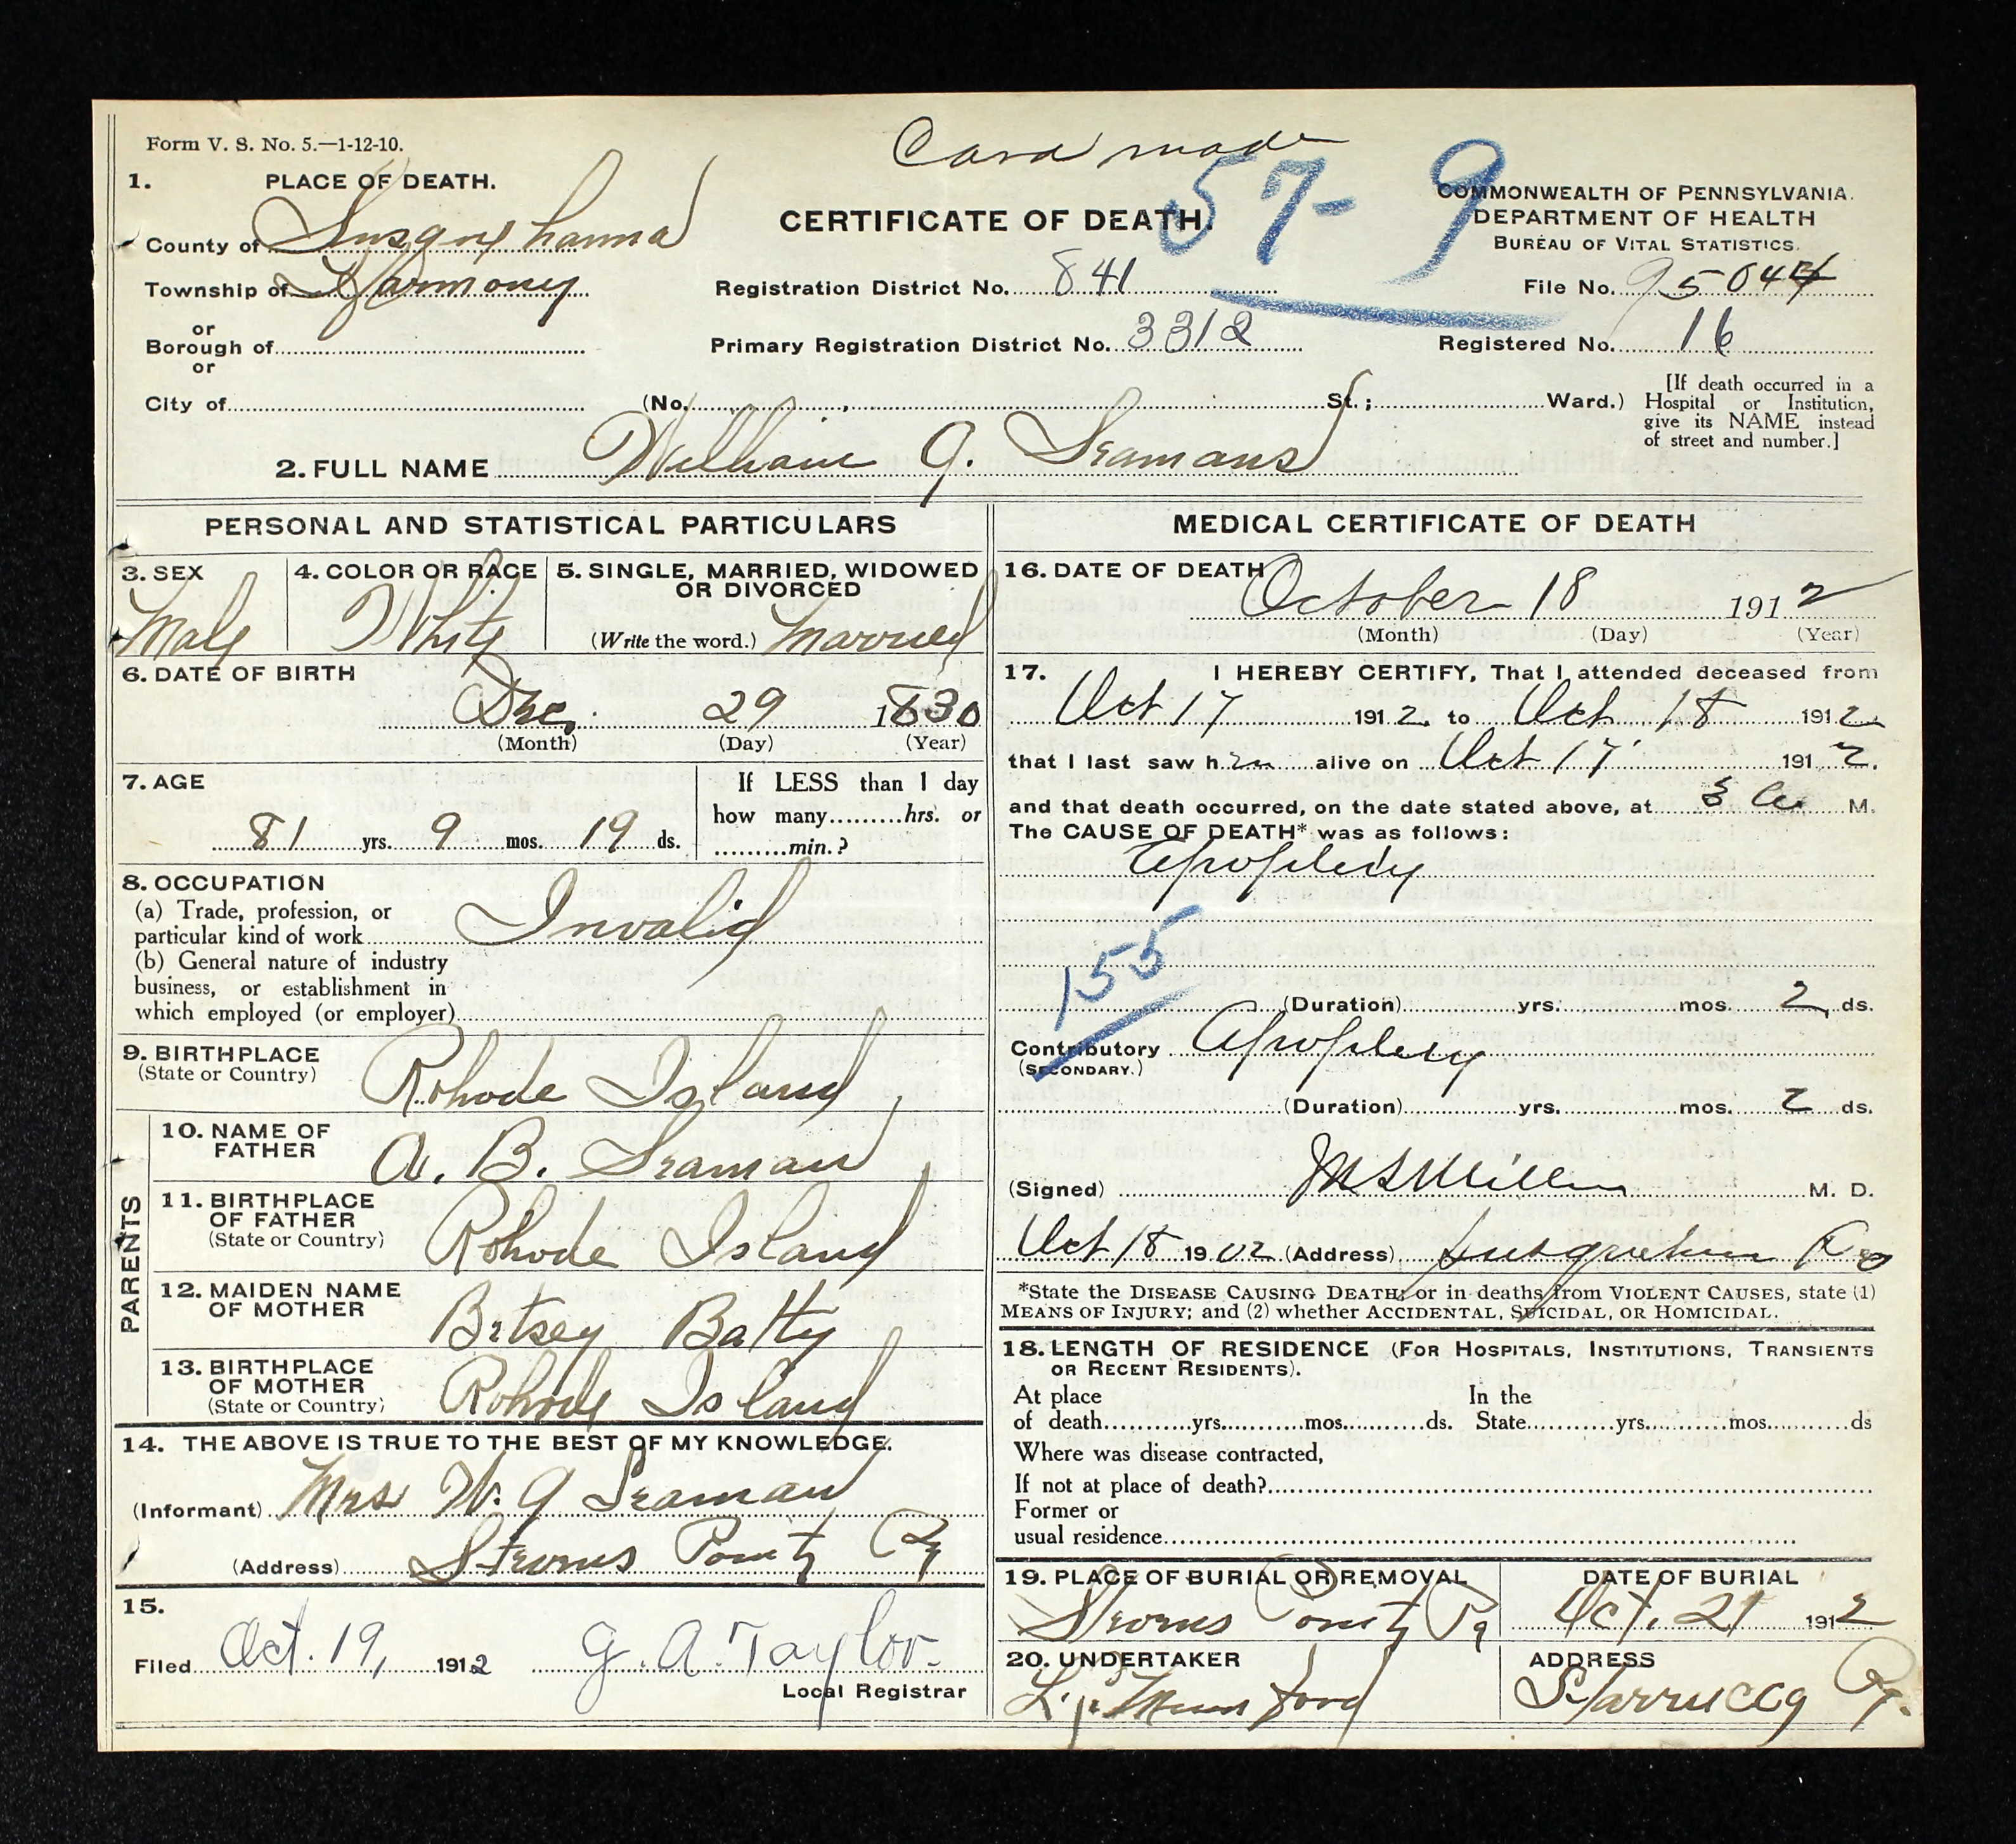 Form V. S. No. 5.—1-12-10.
Card made
57-9
1. PLACE OF DEATH.
County of Susquehanna
Township of Harmony
or
Borough of
or
City of
CERTIFICATE OF DEATH.
COMMONWEALTH OF PENNSYLVANIA.
DEPARTMENT OF HEALTH
BUREAU OF VITAL STATISTICS.
Registration District No. 841
File No. 95044
Primary Registration District No. 3312
Registered No. 16
(No. , St.; Ward.)
[If death occurred in a
Hospital or Institution,
give its NAME instead
of street and number.]
2. FULL NAME William G. Seamans
PERSONAL AND STATISTICAL PARTICULARS
3. SEX
Male
4. COLOR OR RACE
White
5. SINGLE, MARRIED, WIDOWED
OR DIVORCED
(Write the word.) Married
6. DATE OF BIRTH
Dec. 29 1830
(Month) (Day) (Year)
7. AGE
81 yrs. 9 mos. 19 ds.
If LESS than 1 day
how many hrs. or
min.?
8. OCCUPATION
(a) Trade, profession, or
particular kind of work Invalid
(b) General nature of industry
business, or establishment in
which employed (or employer)
9. BIRTHPLACE
(State or Country) Rohode Island
PARENTS
10. NAME OF
FATHER A. B. Seaman
11. BIRTHPLACE
OF FATHER
(State or Country) Rohode Island
12. MAIDEN NAME
OF MOTHER Betsey Batty
13. BIRTHPLACE
OF MOTHER
(State or Country) Rohode Island
14. THE ABOVE IS TRUE TO THE BEST OF MY KNOWLEDGE.
(Informant) Mrs W. G Seaman
(Address) Stevens Point Pa
15.
Filed Oct. 19, 1912 G. A. Taylor.
Local Registrar
MEDICAL CERTIFICATE OF DEATH
16. DATE OF DEATH
October 18 1912
(Month) (Day) (Year)
17. I HEREBY CERTIFY, That I attended deceased from
Oct 17 1912. to Oct 18 1912
that I last saw h im alive on Oct 17 1912.
and that death occurred, on the date stated above, at 3 a M.
The CAUSE OF DEATH* was as follows:
Apoplexy
155
(Duration) yrs. mos. 2 ds.
Contributory Apoplexy
(SECONDARY.)
(Duration) yrs. mos. 2 ds.
(Signed) Miller M. D.
Oct 18 1902 (Address) Susquehanna Pa
*State the DISEASE CAUSING DEATH; or in deaths from VIOLENT CAUSES, state (1)
MEANS OF INJURY; and (2) whether ACCIDENTAL, SUICIDAL, OR HOMICIDAL.
18. LENGTH OF RESIDENCE (FOR HOSPITALS, INSTITUTIONS, TRANSIENTS
OR RECENT RESIDENTS).
At place In the
of death yrs. mos. ds. State yrs. mos. ds
Where was disease contracted,
If not at place of death?
Former or
usual residence
19. PLACE OF BURIAL OR REMOVAL
Stevens Point Pa
DATE OF BURIAL
Oct. 21 1912
20. UNDERTAKER
Mumford
ADDRESS
Starrucca Pa.